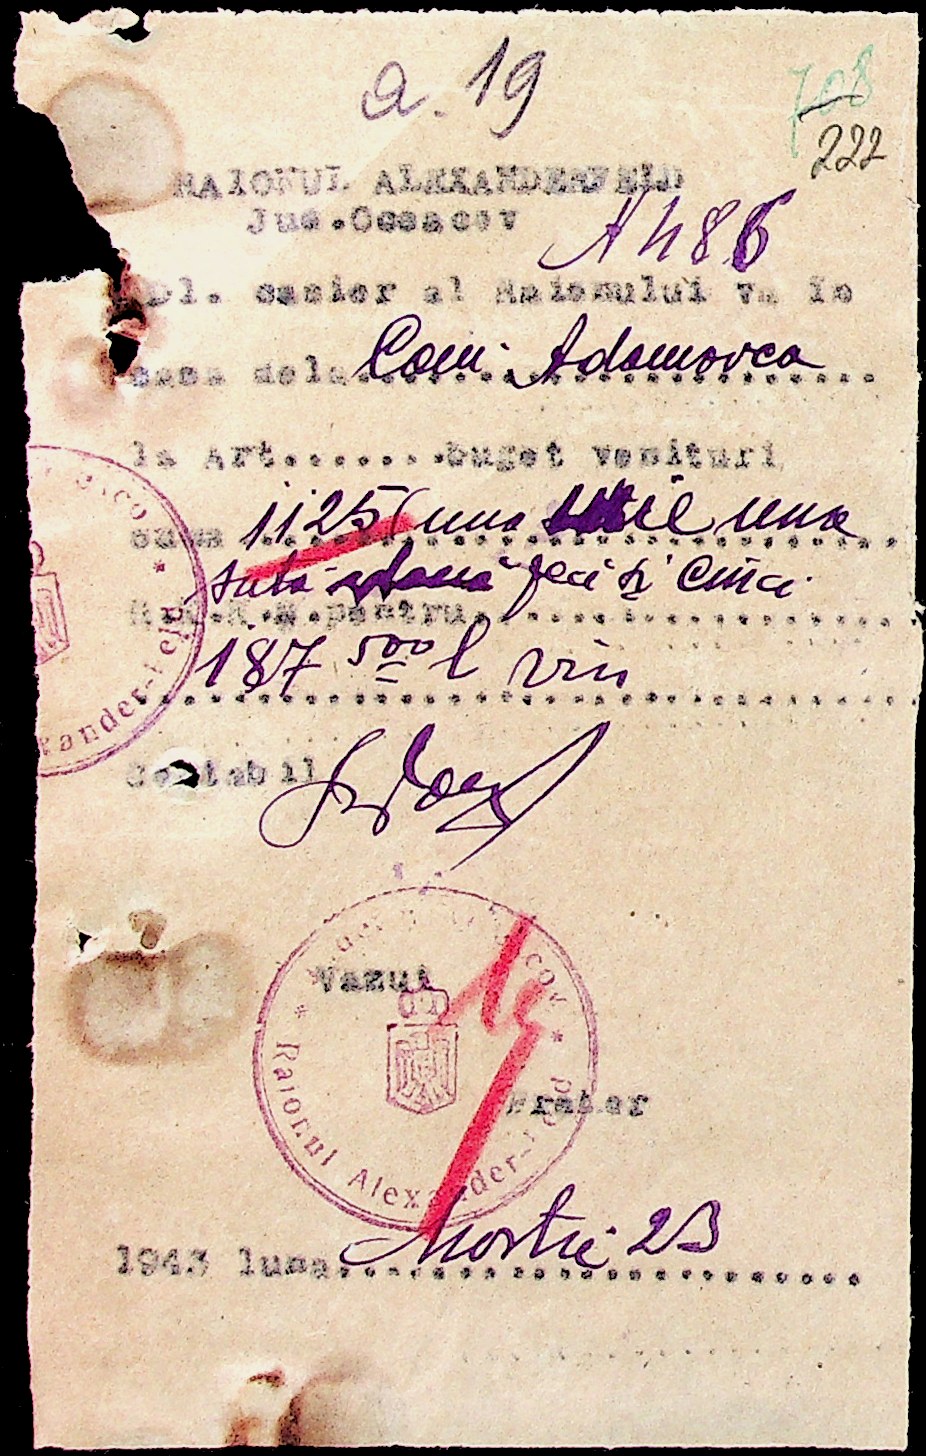 a. 19
708
222
RAIONUL ALEXANDERFELD
Jud. Oceacov
A 486
Dl. casier al Raionului va in
casa dela Com. Adamovca
la Art.......buget venituri
suma 1125 (una mie una
suta două zeci și cinci
R.K.K.S. pentru
187 500 l vin
Contabil
Vazut
15
Pretor
Raionul Alexander-Feld
1943 luna Martie 23